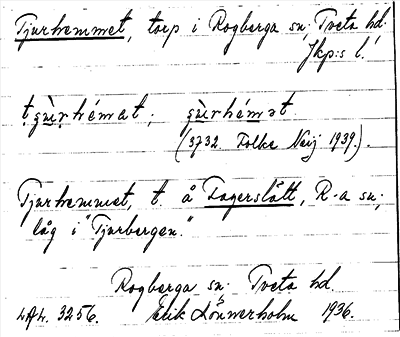 Tjurhemmet, torp i Rogberga sn; Tveta hd.
Jkp:s l.
tʂùrhémat; ʂùrhémət.
(3732. Folke Neij 1939.).
Tjurhemmet, t. å Fagerslätt, R-a sn;
låg i "Tjurbergen."
Rogberga sn. Tveta hd.
4A4. 3256. Erik Lönnerholm 1936.